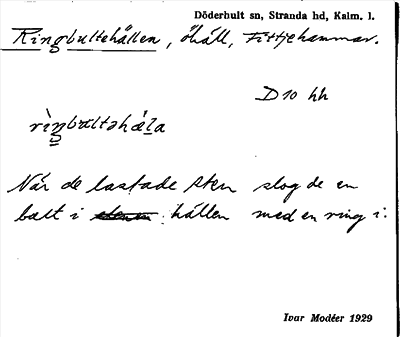 Döderhult sn, Stranda hd, Kalm. l.
Ringbultehällen, öhäll, Fittjehammar.
D 10 hh
När de lastade sten slog de en
bult i hällen med en ring i.
Ivar Modéer 1929